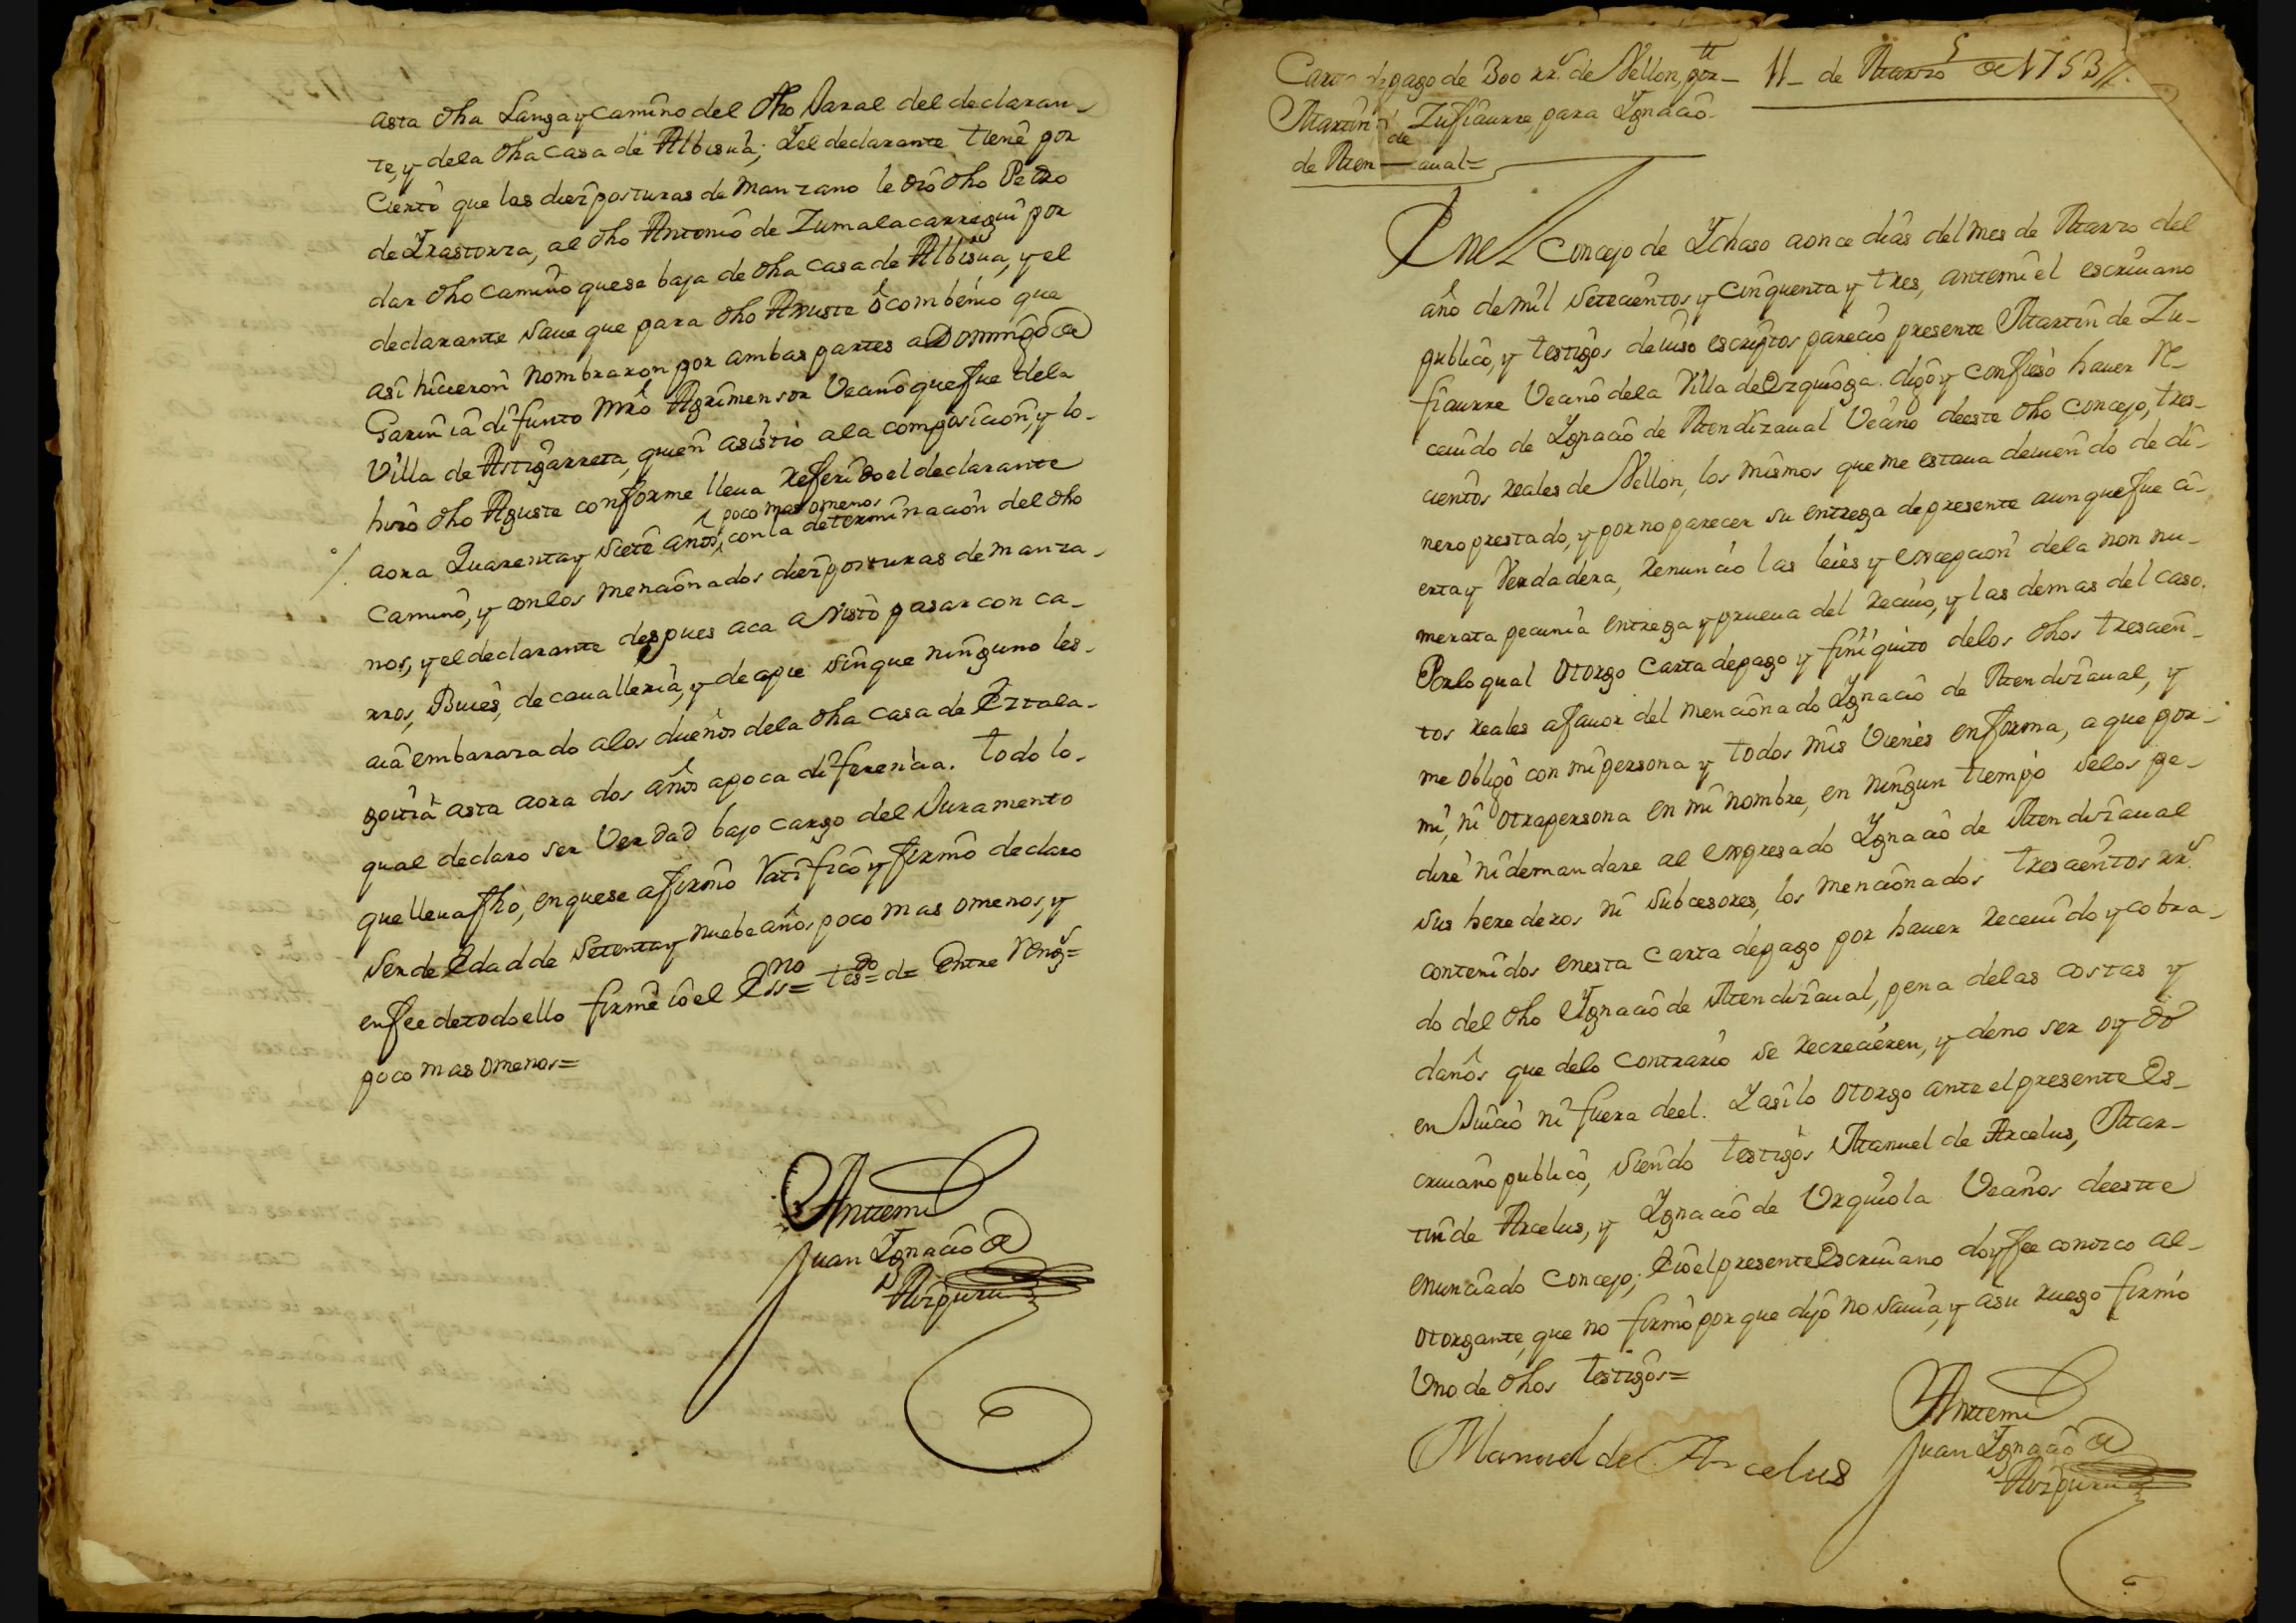 asta dha Langa y camino del dho Jaral del declaran-
te, y dela dha casa de Albisua; Y el declarante tiene por
cierto que las diez posturas de manzano le dió dho Pedro
de Yrastorza, al dho Antonio de Zumalacarregui por
dar dho camino que se baja de dha casa de Albisua, y el
declarante save que para dho Ajuste ó combenio que
asi hicieron nombraron por ambas partes a Domingo de
Garin ia difunto Mro Agrimensor Vecino que fue dela
Villa de Astigarreta, quien asistió ala composicion, y lo-
hizo dho Ajuste conforme lleua referido el declarante
poco mas omenos
aora Quarenta y siete años, con la determinacion del dho
Camino, y con los mencionados diez posturas de manza-
nos, y el declarante despues aca a visto pasar con ca-
rros, Bueis, de caualleria, y de apie sin que ninguno les-
aia embarazado alos dueños dela dha casa de Eztala-
goitia asta aora dos años apoca diferencia. Todo lo-
qual declaro ser Verdad bajo cargo del Juramento
que lleua fho, en que se afirmó Ratificó y firmó declaro
ser de Edad de Setenta y nuebe años poco mas omenos, y
en fee de todo ello firmé io el Essno= tesdo= d= Entre Rengs=
poco mas omenos=
Antemi
Juan Ignacio de
Aizpuru
Carta de pago de 300 rrs. de Vellon, por- 11- de Marzo de 1753
Martin de Zufiaurre para Ignacio
de Men-
aual=
En el Concejo de Ychaso a once dias del mes de Marzo del
año de mil setecientos y cinquenta y tres, ante mi el escriuano
publico, y testigos deiuso escriptos pareció presente Martin de Zu-
fiaurre Vecino dela Villa de Ezquioga. digo y confieso hauer re-
ceuido de Ignacio de Mendizaual Vecino deeste dho Concejo, tres-
cientos reales de Vellon, los mismos que me estaua deuiendo de di-
nero prestado, y por no parecer su entrega de presente aunque fue ci-
erta y Verdadera, renuncio las leies y excepcion dela non nu-
merata pecunia entrega y prueua del reciuo, y las demas del caso.
Por lo qual otorgo carta de pago y finiquito delos dhos trescien-
tos reales afauor del mencionado Ignacio de Mendizaual, y
me obligo con mi persona y todos mis vienes en forma, a que por-
mi, ni otra persona en mi nombre, en ningun tiempo selos pe-
dire ni demandare al expresado Ignacio de Mendizaual
sus herederos ni subcesores, los mencionados trescientos rrs.
contenidos en esta carta de pago por hauer receuido y cobra-
do del dho Ignacio de Mendizaual, pena delas costas y
daños que delo contrario se recrecieren, y deno ser oydo
en Juicio ni fuera deel. Y asi lo otorgo ante el presente Es-
criuano publico, siendo testigos Manuel de Arcelus, Mar-
tin de Arcelus, y Ignacio de Urquiola Vecinos deeste
enunciado concejo; E io el presente Escriuano doy fee conozco al-
otorgante, que no firmó por que dijo no sauia, y asu ruego firmó
Uno de dhos testigos=
Manuel de Arcelus
Antemi
Juan Ignacio de
Aizpuru